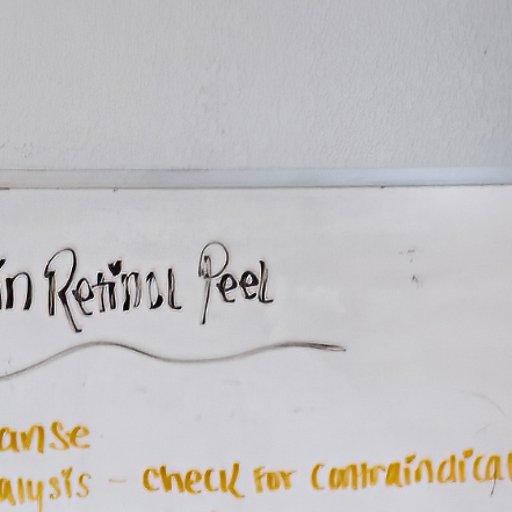 in Retinol Peel
anse
alysis - check for contraindical